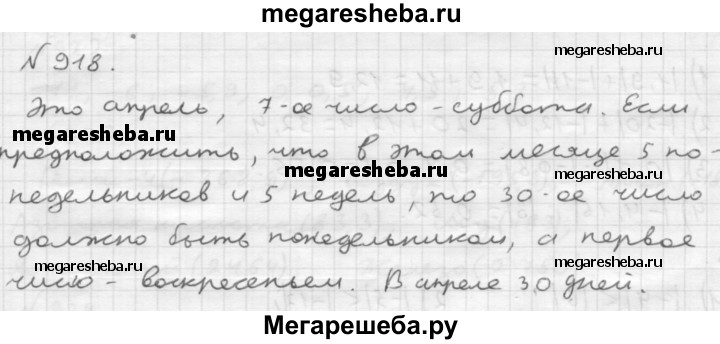 megaresheba.ru
№918.
megaresheba.ru
Это апрель, 7-ое число - суббота. Если
megaresheba.ru
предположить, что в этом месяце 5 по-
megaresheba.ru
megaresheba.ru
недельников и 5 недель, то 30-ое число
должно быть понедельником, а первое
megaresheba.ru
megaresheba.ru
число - воскресеньем. В апреле 30 дней.
Мегарешеба.ру